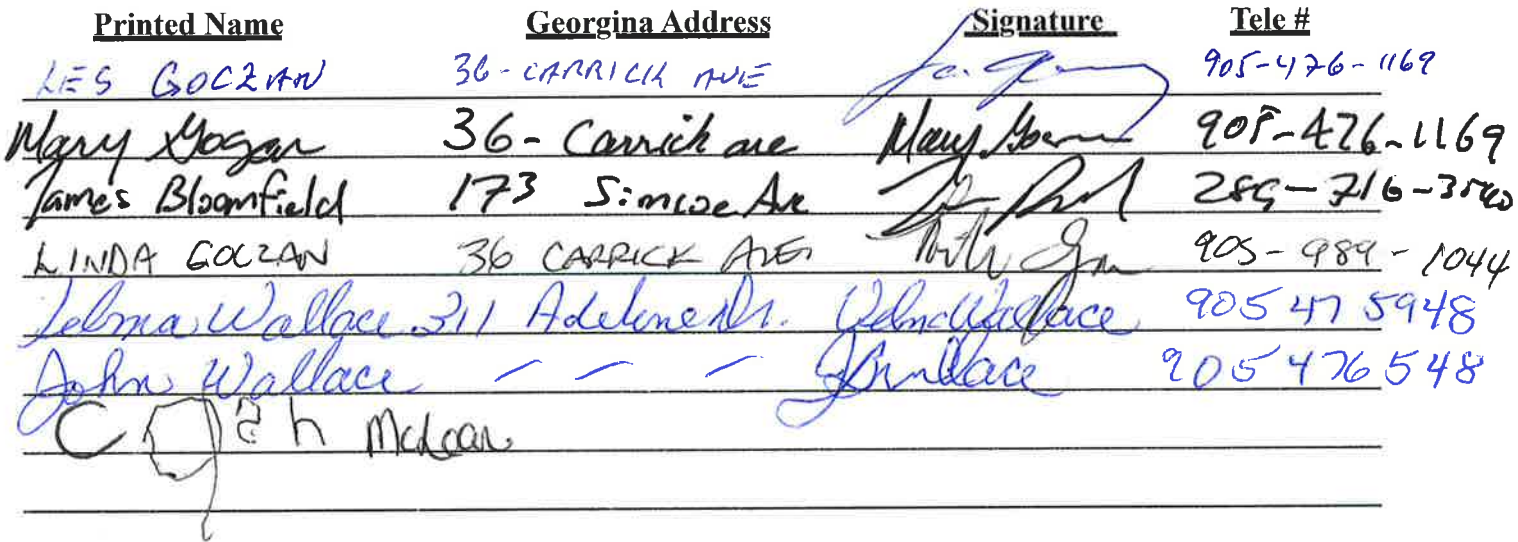 Printed Name Georgina Address Signature Tele #
LES GOCZAN 36-CARRICK AVE 905-476-1169
Mary Gogan 36-Carrick ave Mary 905-476-1169
James Bloomfield 173 Simcoe Ave 289-716-3540
LINDA GOCZAN 36 CARRICK AVE 905-989-1044
Velma Wallace 311 Adeline Dr. Velma Wallace 905 47 5948
John Wallace - - - J Wallace 905 476 548
McLean